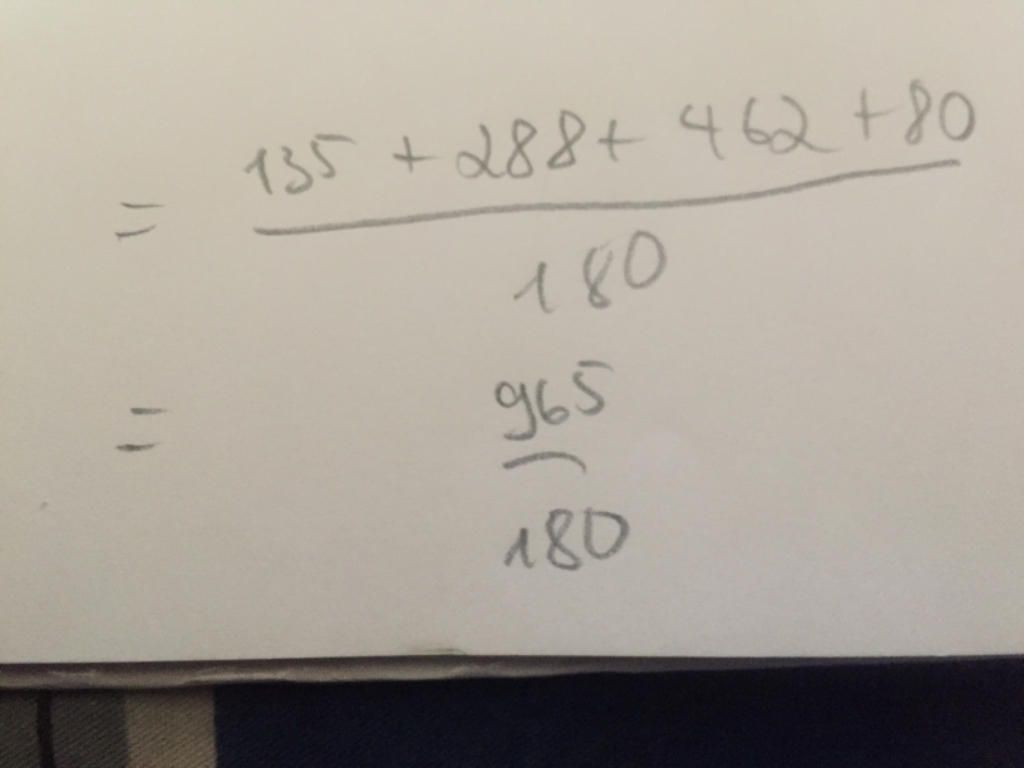 = 135 + 288 + 462 + 80
180
= 965
180